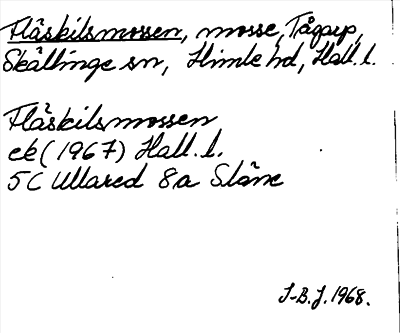 Fläskilsmossen, mosse, Tågarp,
Skällinge sn, Himle hd, Hall. l.
Fläskilsmossen
ek (1967) Hall. l.
5C Ullared 8a Släne
I-B. J. 1968.